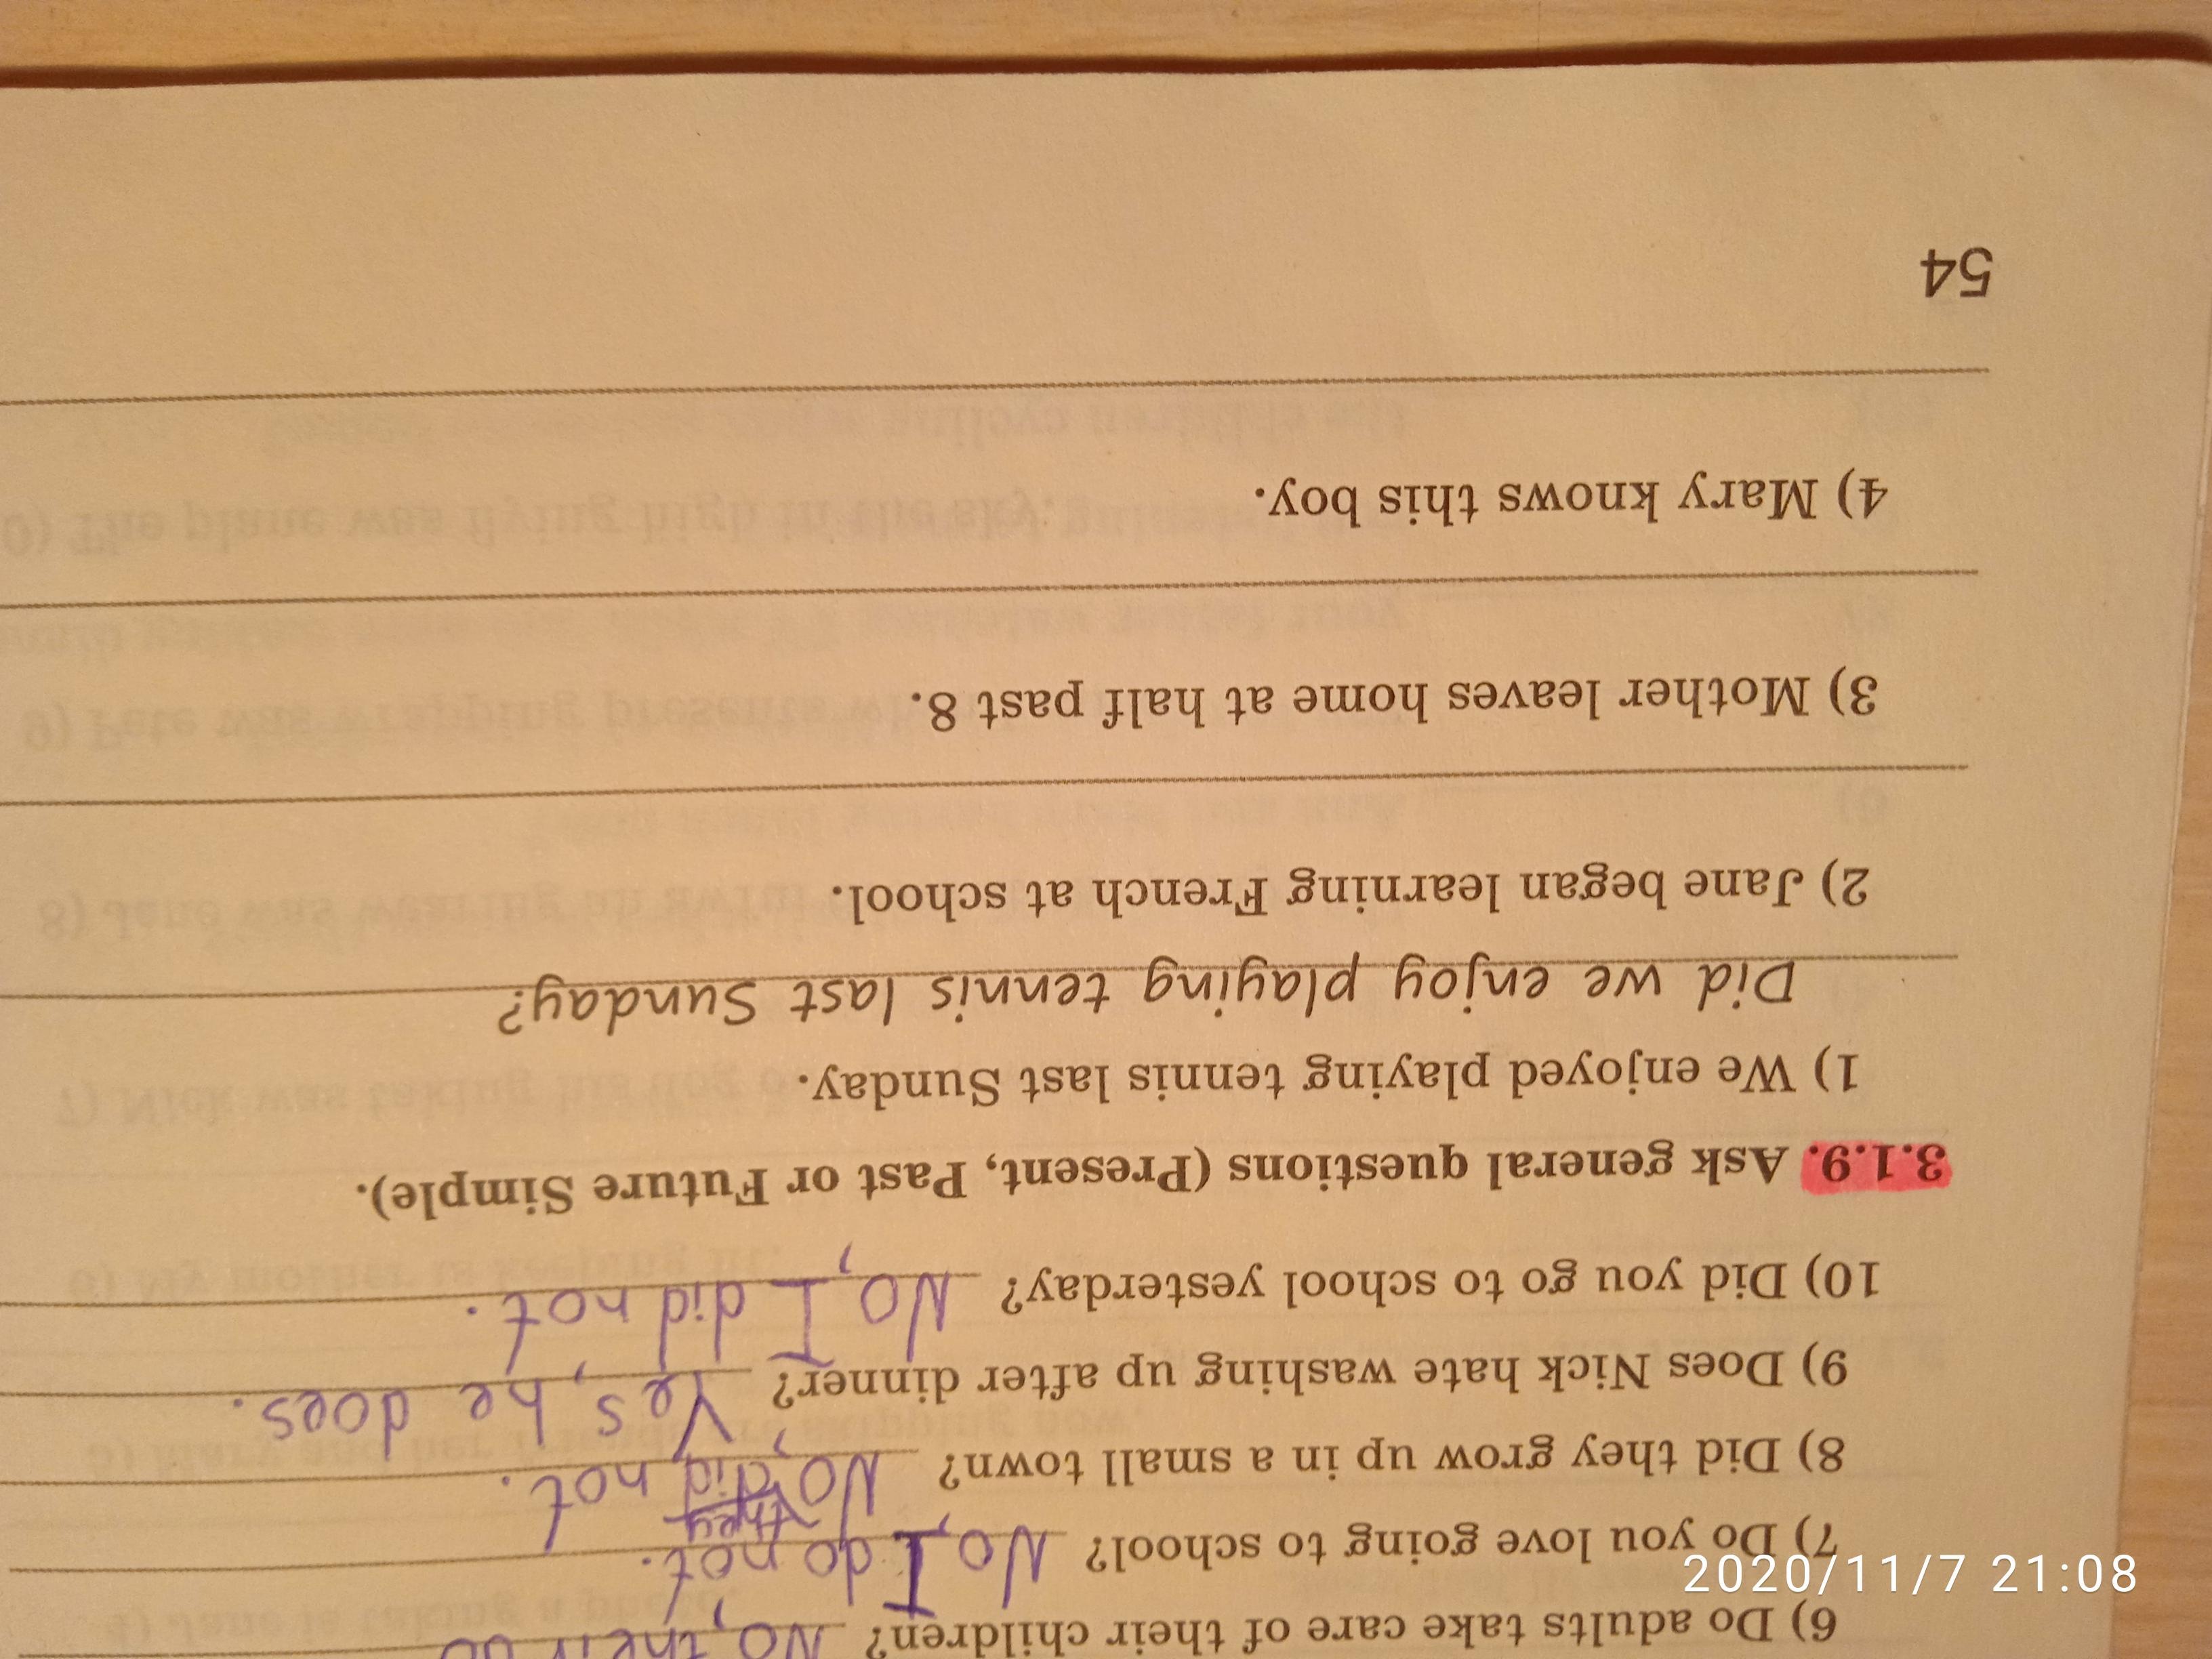 6) Do adults take care of their children? No, their do
7) Do you love going to school? No, I do not.
they
8) Did they grow up in a small town? No, did not.
9) Does Nick hate washing up after dinner? Yes, he does.
10) Did you go to school yesterday? No, I did not.
3.1.9. Ask general questions (Present, Past or Future Simple).
1) We enjoyed playing tennis last Sunday.
Did we enjoy playing tennis last Sunday?
2) Jane began learning French at school.
3) Mother leaves home at half past 8.
4) Mary knows this boy.
54
2020/11/7 21:08